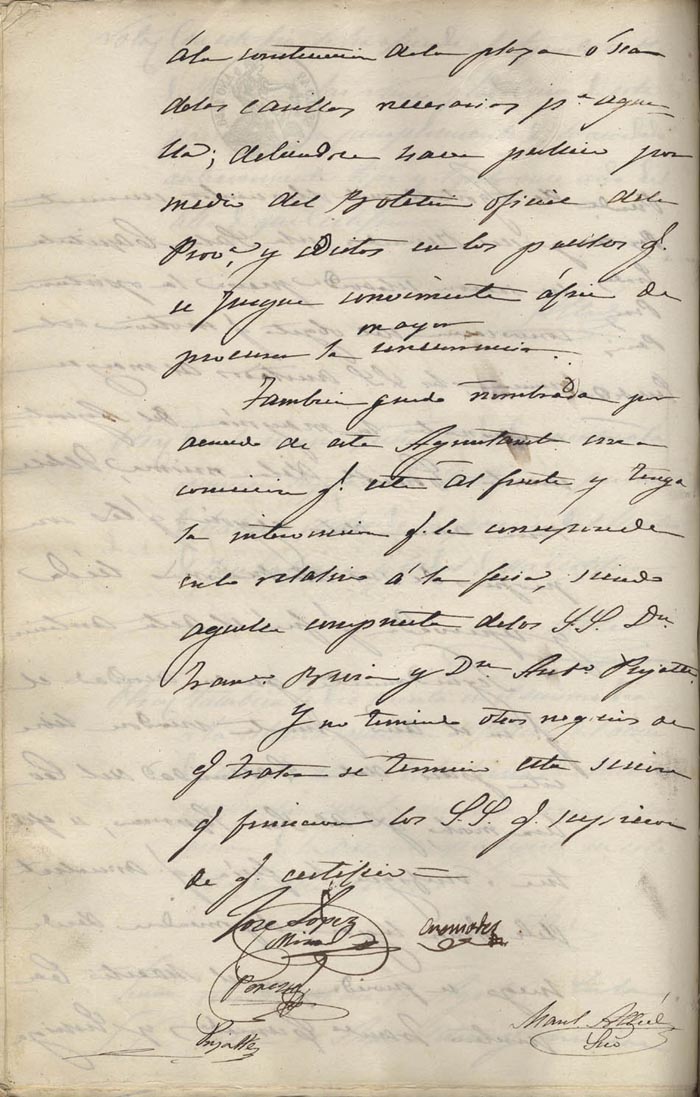 á la construccion de la plaza ó sea
de las casillas necesarias p.ª aque
lla; debiendose hacer publico por
medio del Boletin oficial de la
Prov.ª, y edictos en los pueblos q.
se juzgue conveniente á fin de
mayor
procurar la concurrencia.
Tambien quedó nombrada por
acuerdo de este Ayuntamt. una
comision q. esté al frente y tenga
la intervencion q. le corresponde
en lo relativo á la feria, siendo
aquella compuesta de los S.S. Dn.
Franco. y Dn. Anto. Pujalte.
Y no teniendo otros negocios de
q. tratar se terminó esta sesion
q. firmaron los S.S. q. supieron
de q. certifico =
Jose Lopez
Mira
Pujalte
Manl.
Srio